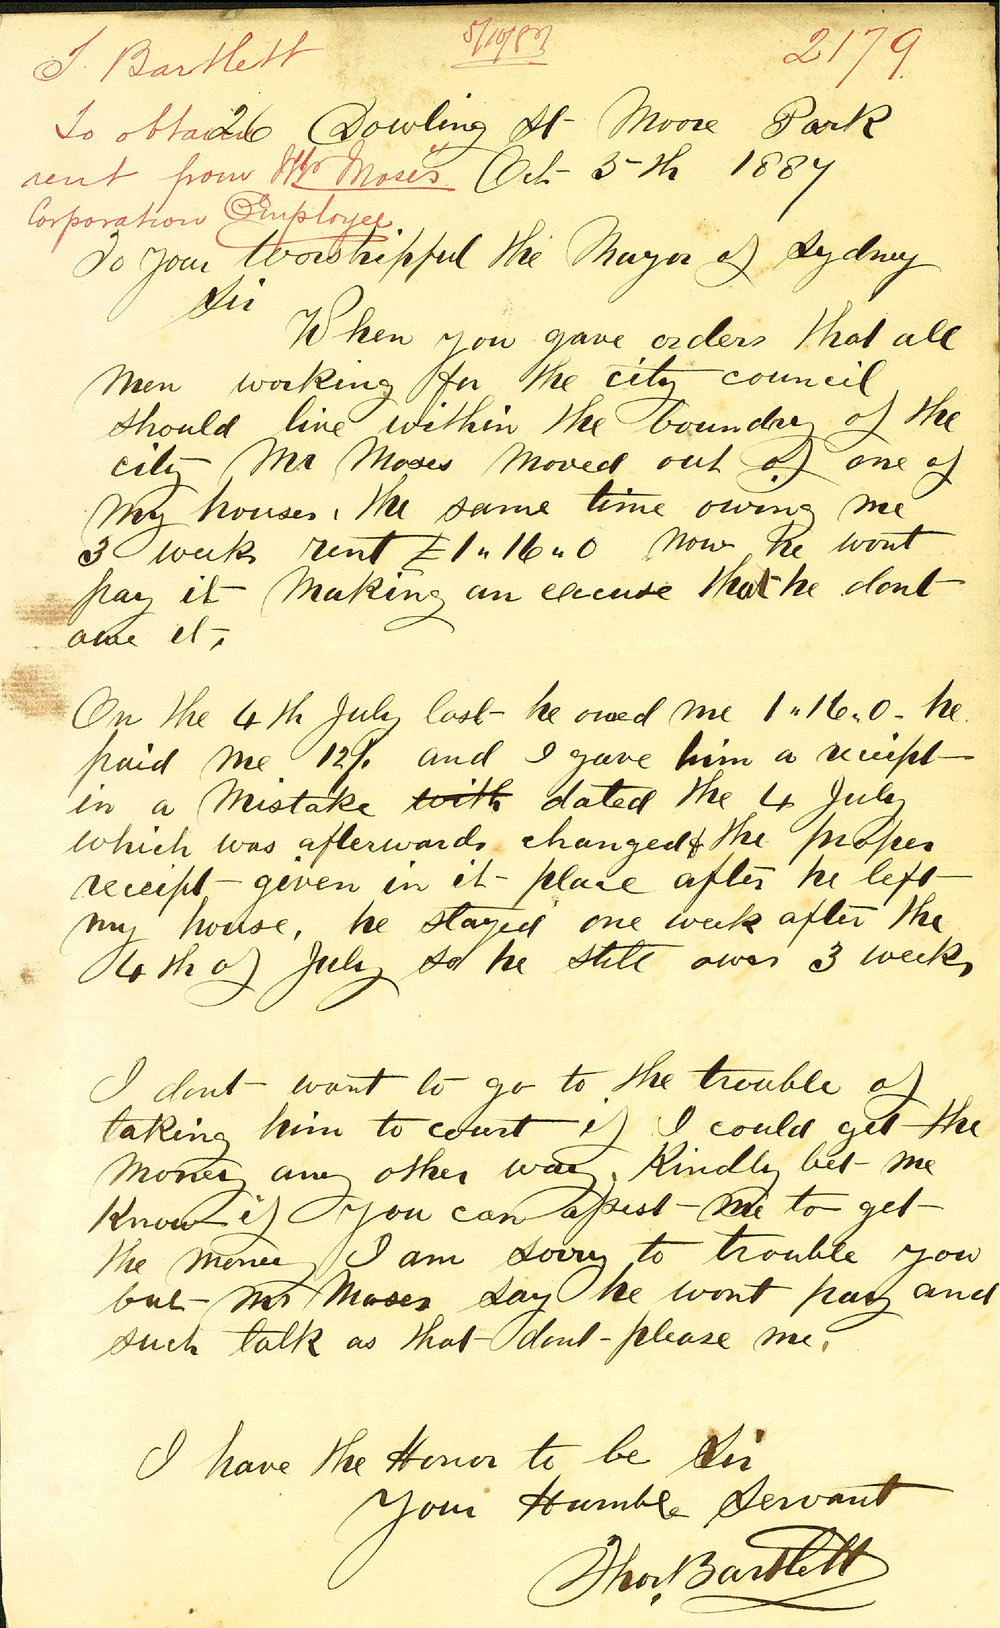 T. Bartlett
5/10/87
2179
To obtain
rent from Mr Moses
Corporation Employee
26 Dowling St Moore Park
Oct 5th 1887
To Your Worshipful the Mayor of Sydney
Sir
When you gave orders that all
men working for the city council
should live within the boundry of the
city Mr Moses moved out of one of
my houses, the same time owing me
3 weeks rent £1"16"0 now he wont
pay it making an excuse that he dont
owe it,
On the 4th July last he owed me 1"16"0 - he
paid me 12/. and I gave him a receipt
in a mistake with dated the 4 July
which was afterwards changed & the proper
receipt given in it place after he left
my house, he stayed one week after the
4th of July so he still owes 3 weeks
I dont want to go to the trouble of
taking him to court if I could get the
money any other way, Kindly let me
know if you can assist me to get
the money I am sorry to trouble you
but Mr Moses say he wont pay and
such talk as that dont please me.
I have the Honor to be Sir
Your Humble Servant
Thos. Bartlett